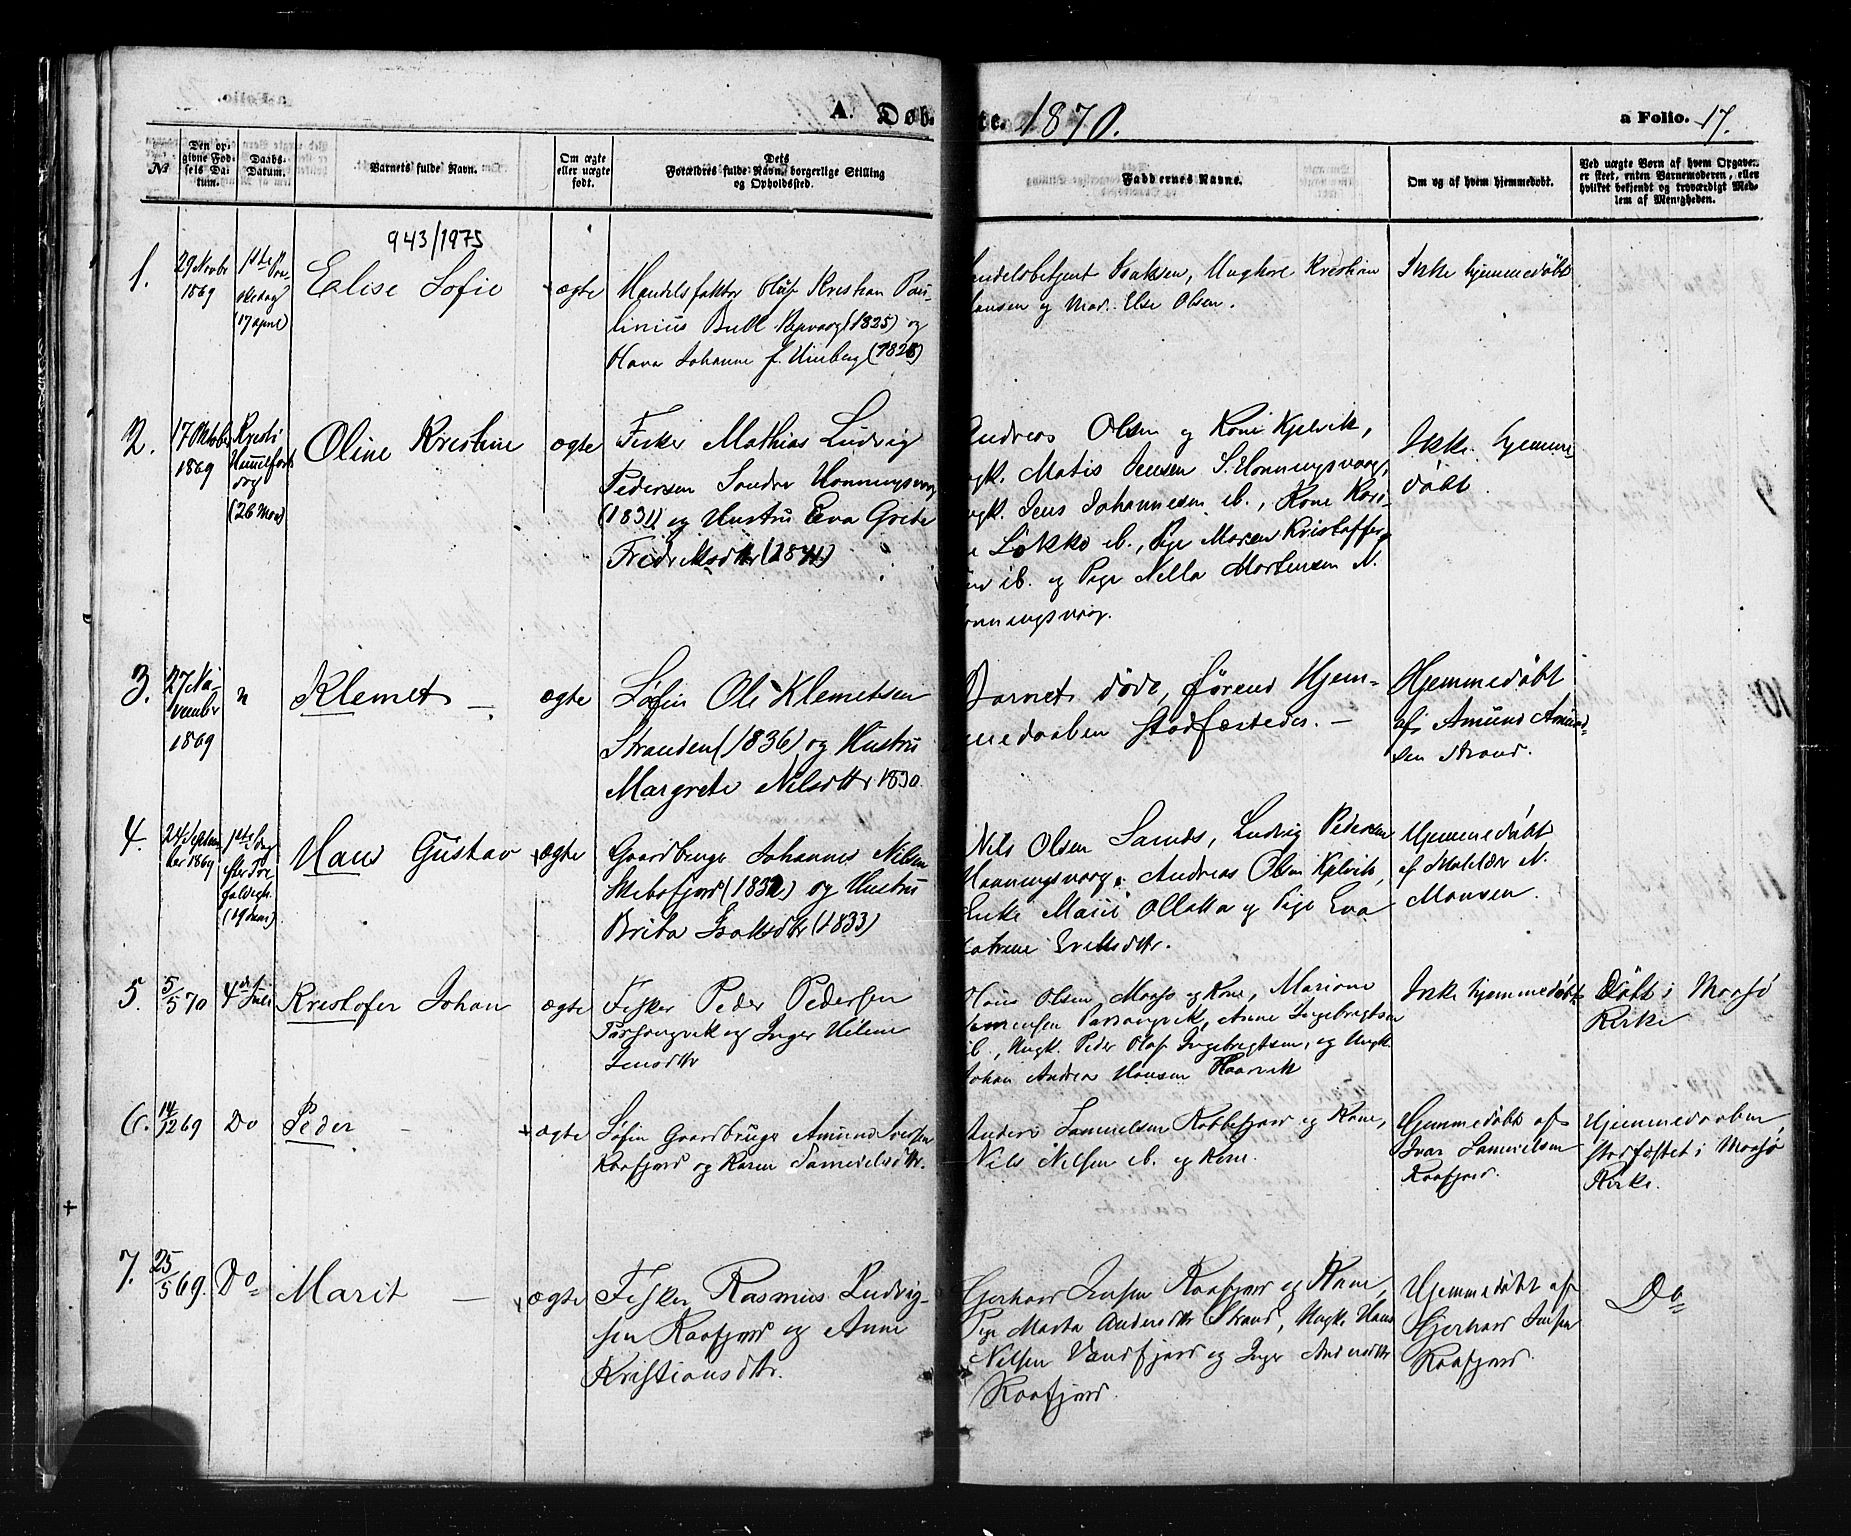 A. Døb.
te. 1870.
a Folio. 17.
No
Den op-
givne Fød-
sels Da-
tum.
Daabs-
Datum.
Barnets fulde Navn.
Om ægte
eller uægte
født.
Dets
Forældres fulde Navn, borgerlige Stilling
og Opholdssted.
Faddernes Navne.
Om og af hvem hjemmedøbt.
Ved uægte Børn af hvem Opgaven
er skeet, enten Barnemoderen, eller
hvilket bekjendt og troværdigt Med-
lem af Menigheden.
943/1975
1.
29 Novbr
1869
1ste Paa-
skedag
(17 april)
Elise Sofie
ægte
Handelsfaktor Oluf Kristian Pau-
linius Bull (1825) og
Hana Johanne f. (1828)
andelsbetjent Isaksen, Ungkare Kristian
ansen og Mad. Else Olsen.
Ikke hjemmedøbt
2.
17 Oktober
1869
Kristi
Himmelfarts
dag
(26 Mai)
Oline Kristine
ægte
Fisker Mathias Ludvig
Pedersen Søndre Honningsvaag
(1831) og Hustru Eva Grete
Fredriksdtr (1841)
Andreas Olsen og Kone Kjelvik,
ngk. Matis Jensen S. Honningsvaag,
ngk. Jens Johannesen ib., Kone Kari-
e Løkke ib., Pige Maren Kristoffer
en ib. og Pige Nella Mortensen N.
onningsvaag.
Ikke hjemme-
døbt
3.
27 No-
vember
1869
"
Klemet —
ægte
Søfin Ole Klemetsen
Stranden (1836) og Hustru
Margrete Nilsdtr 1830.
Barnet døde, førend Hjem-
medaaben stadfæstedes. —
Hjemmedøbt
af Amund Amund-
sen Strand.
4.
24 Septem
ber 1869
1ste Søng
efter Tre
foldigh.
(19 Juni)
Hans Gustav
ægte
Gaardbruger Johannes Nilsen
Skibsfjord (1832) og Hustru
Brita Isaksdtr (1833)
Nils Olsen Sands, Ludvig Pedersen
Honningsvaag, Andreas Olsen Kjelvik,
Enke Marie Ollatta og Pige Eva
Katrine Eriksdtr.
Hjemmedøbt
af Matilde N.
Monsen.
5.
5/5 70
4de Juli
Kristofer Johan
ægte
Fisker Peder Pedersen
og Inger Helene
Jensdtr
Hans Olsen Maasø og Kone, Mariane
Anne Ingebrigtsen
ib., Ungk. Peder Olaf Ingebrigtsen, og Ungk.
Johan Andreas Hansen
Ikke hjemmedøbt
Døbt i Maasø
Kirke
6.
14/12 69
Do
Peder —
ægte
Søfin Gaardbruger Amund Iversen
Kaafjord og Karen Samuelsdtr.
Anders Samuelsen Kobbefjord og Kone,
Nils Nilsen ib. og Kone.
Hjemmedøbt af
Ivar Samuelsen
Kaafjord.
Hjemmedaaben
stadfæstet i Maasø
Kirke.
7.
25/5 69.
Do
Marit —
ægte
Fisker Rasmus Ludvig-
sen Kaafjord og Anne
Kristiansdtr.
Gerhard Jensen Kaafjord og Kone,
Pige Marta Andersdtr Strand, Ungk. Hans
Nilsen Vandfjord og Inger Andersdtr
Kaafjord.
Hjemmedøbt af
Gerhard Jensen
Kaafjord.
Do